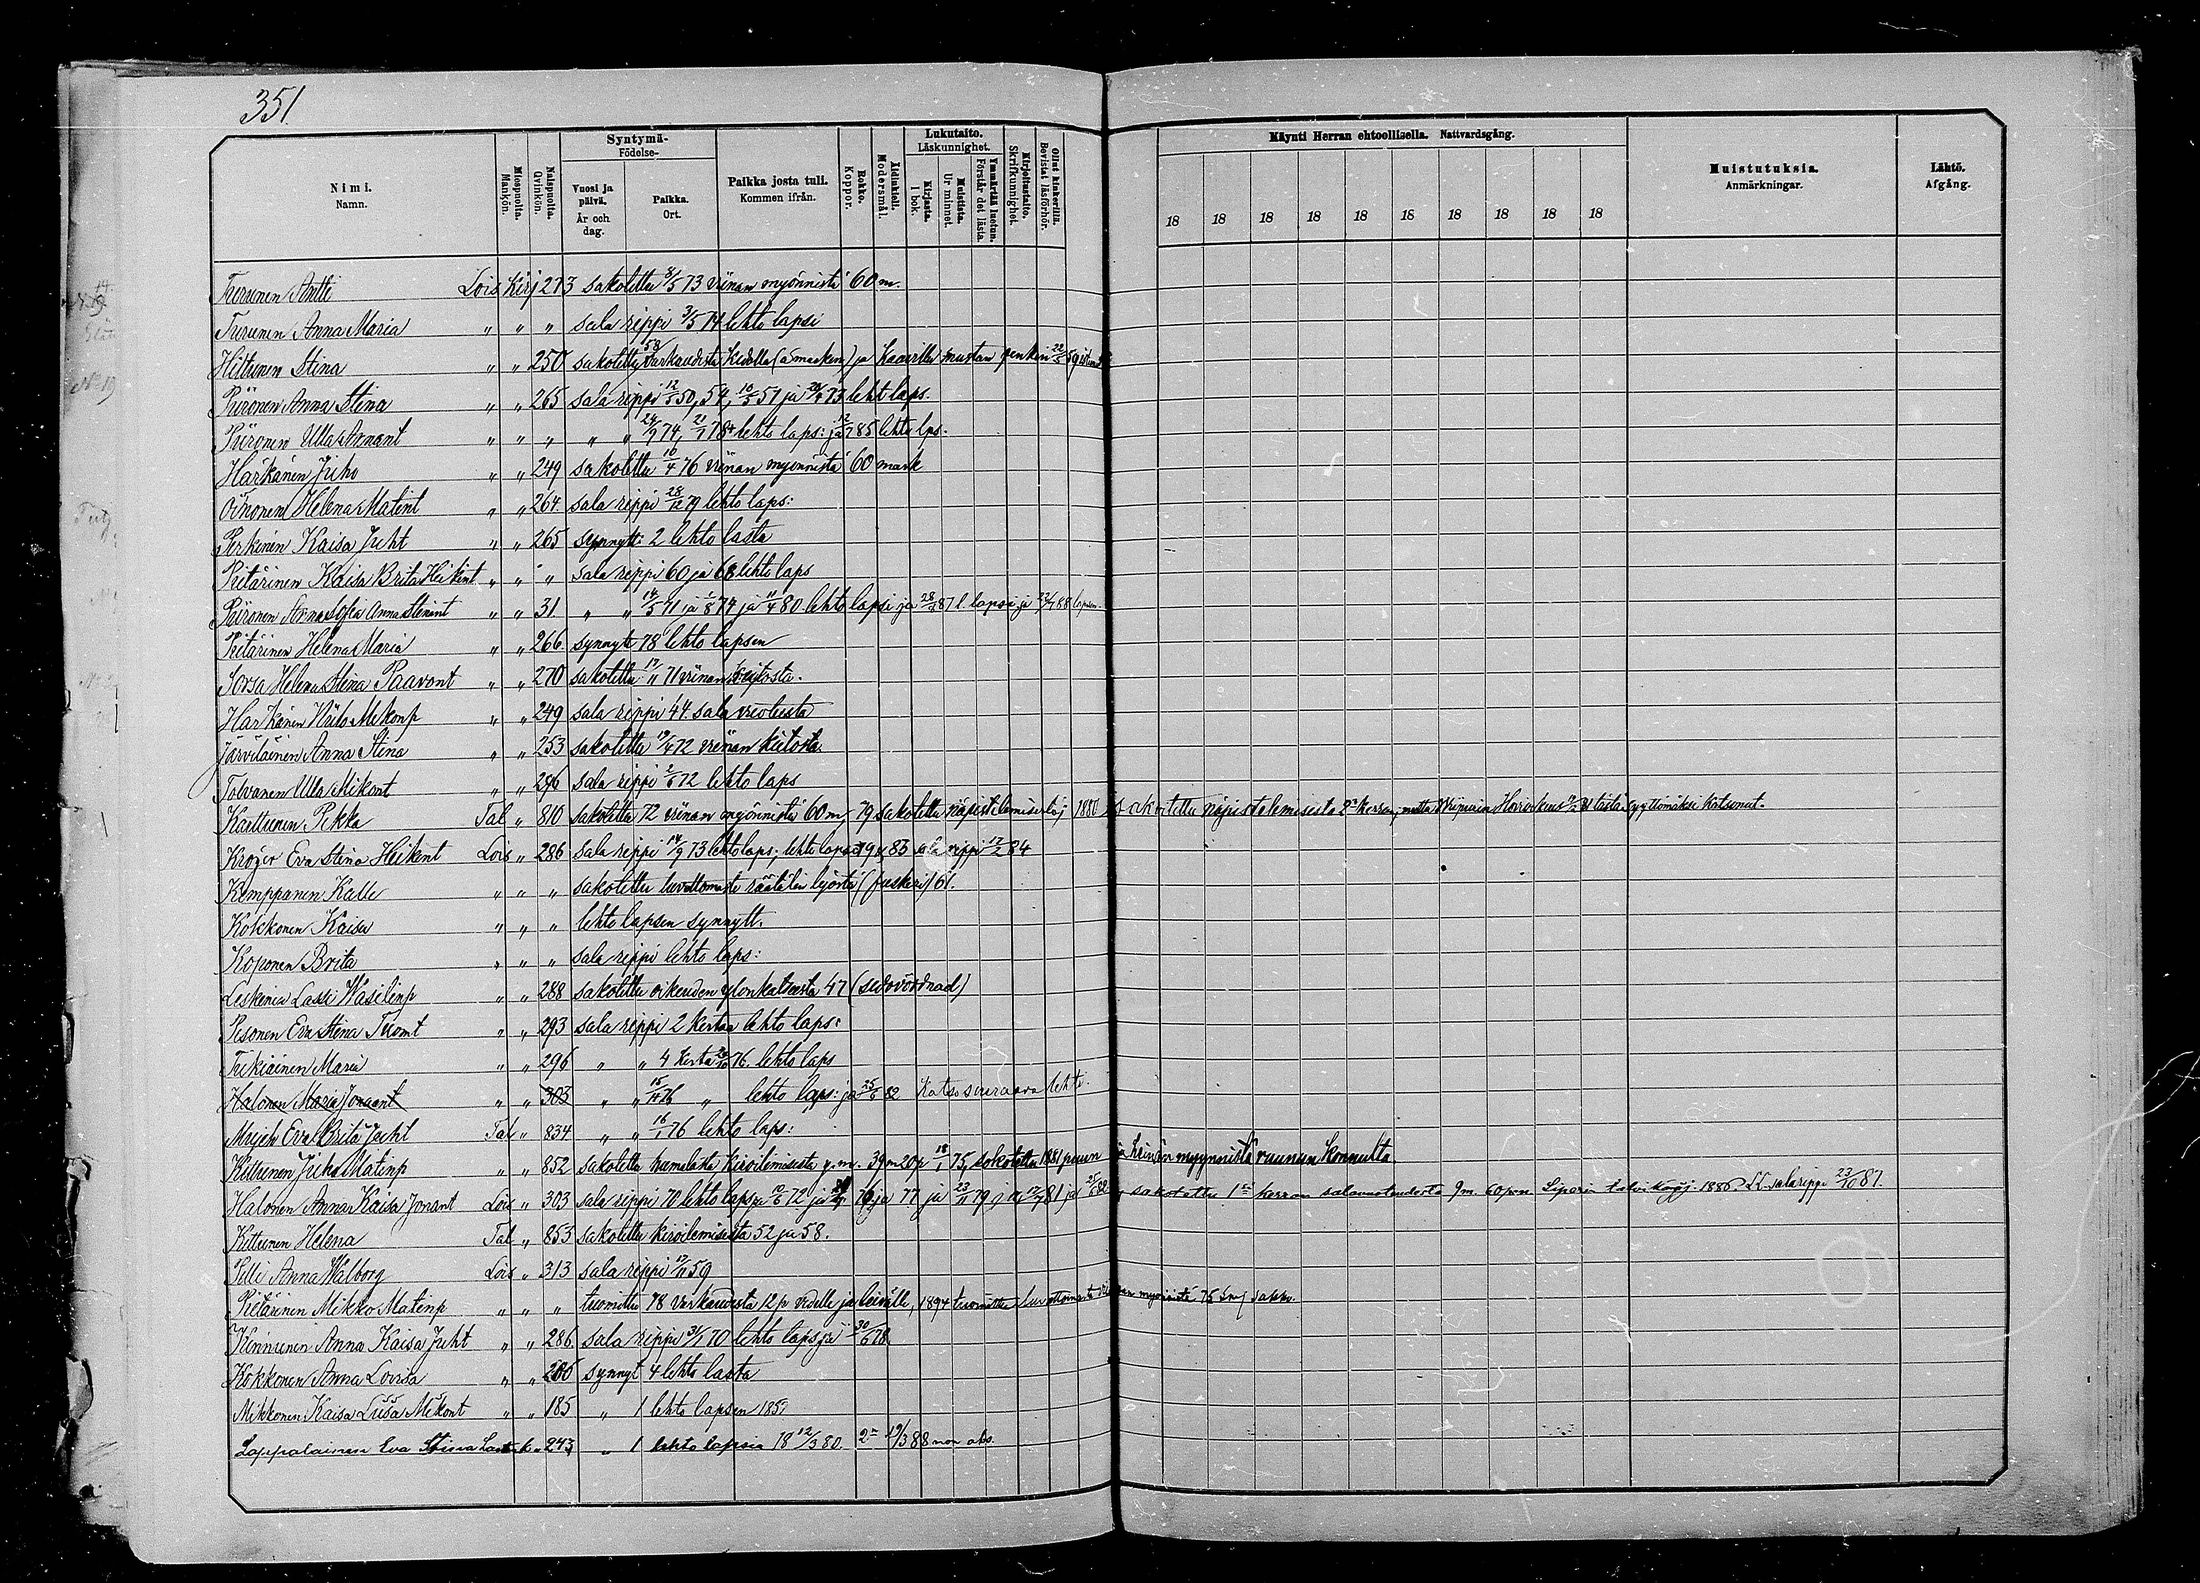 351.
Nimi.
Namn.
Miespuolta.
Mankön.
Naispuolta.
Qvinkön.
Syntymä-
Födelse-
Vuosi ja päivä.
År och dag.
Paikka.
Ort.
Paikka josta tuli.
Kommen ifrån.
Rokko.
Koppor.
Äidinkieli.
Modersmål.
Lukutaito.
Läskunnighet.
Kirjasta.
I bok.
Muistista.
Ur minnet.
Ymmärtää luetun.
Förstår det lästa.
Kirjoitustaito.
Skrifkunnighet.
Ollut kinkerillä.
Bevistat läsförhör.
Käynti Herran ehtoollisella. Nattvardsgång.
18 18 18 18 18 18 18 18 18 18
Muistutuksia.
Anmärkningar.
Lähtö.
Afgång.
Turunen Antti Lois Kirj 273 sakotettu 8/5 73 viinan myönnistä 60 m.
Turunen Anna Maria " " " sala rippi 3/5 74 lehto lapsi
Hiltunen Stina " " 250 sakotettu 58 varkaudesta
Piironen Anna Stina " " 265 sala rippi 12/5 50, 54, 10/5 57 ja 20/4 73 leht laps.
Piironen Ulla " " " " " 24/9 74, 21/1 78 lehto laps: ja 12/7 85 lehto lps.
Härkänen Juho " " 249 sakotettu 16/4 76 viinan myönnistä 60 mark
Oinonen Helena Matint " " 264 sala rippi 28/12 79 lehto laps:
Perkinen Kaisa Juht " " 265 synnytt. 2 lehto lasta
Pietärinen Kaisa Brita Heikint " " " sala rippi 60 ja 68 lehto laps
Piironen Anna Sofia Anna Stinint " " 31 " " 14/5 71 ja 1/8 74 ja 11/4 80 lehto lapsi ja 28/2 87 l. lapsi ja 23/4 88 lapsen.
Pietärinen Helena Maria " " 266 synnyt. 78 lehto lapsen
Sorsa Helena Stina Paavont " " 270 sakotettu 71 viinan keitosta.
Härkänen Mikonp " " 249 sala rippi 44. sala vuoteesta
Järviläinen Anna Stina " " 253 sakotettu 19/4 72 viinan keitosta
Tolvanen Ulla Mikont " " 296 sala rippi 2/6 72 lehto laps
Karttunen Pekka Tal " 810 sakotettu 72 viinan myönnistä 60 m, 79 sakotettu näpistelemisestä j 1880 sakotettu näpistelemisestä 2n kerran, mutta Wiipurin
Kröger Eva Stina Heikint Lois " 286 sala rippi 14/9 73 lehto laps; lehto lapsi 79 83 sala rippi 17/2 84
Kemppanen Kalle " " " sakotettu luvattomasta räätälin työstä (fuskeri) 61.
Kokkonen Kaisa " " " lehto lapsen synnytt.
Koponen Brita " " " sala rippi lehto laps:
Leskinen Lassi Wasilinp " " 288 sakotettu oikeuden ylonkatseesta 47
Pesonen Eva Stina Tuomt " " 293 sala rippi 2 kertaa lehto laps:
Tukiainen Maria " " 296 " " 4 kerta 76. lehto laps
Halonen Maria Jonaant " " 303 " " 15/11 76 " lehto laps: ja 25/6 82 Katso seuraava lehti.
Eva Brita Juht Tal " 834 " " 16/1 76 lehto laps:
Kettunen Juho Matinp " " 852 sakotettu humalasta kiroilemisesta y.m. 39 m 20 p 18/1 75, sakotettu 1881 puun ja heinän myynnistä ruunun konnulta
Halonen Anna Kaisa Jonant Lois " 303 sala rippi 70 lehto lapsi 72 ja 76 ja 77 ja 23/11 79 81 ja sakotettu 1n kerran salavuoteudesta 9 m. 60 pen. Liperin talvikäräj. 1886 salarippi 23/10 87.
Kettunen Helena Tal " 853 sakotettu kiroilemisesta 52 ja 58.
Pelli Anna Walborg Lois " 313 sala rippi 17/11 59
Pietärinen Mikko Matinp " " " tuomittu 78 varkaudesta 12 p vedelle ja leivälle, 1894 tuomittu luvattomasta viinan myönnistä 75 Smk sakko.
Kinnunen Anna Kaisa Juht " " 286 sala rippi 31/1 70 lehto laps ja 30/6 78.
Kokkonen Anna Lovisa " " 206 synnyt 4 lehto lasta
Mikkonen Kaisa Liisa Mikont " " 185 " 1 lehto lapsen 1857
Lappalainen Eva Stina 243 " 1 lehto lapsia 18 12/3 80. 2n 19/3 88